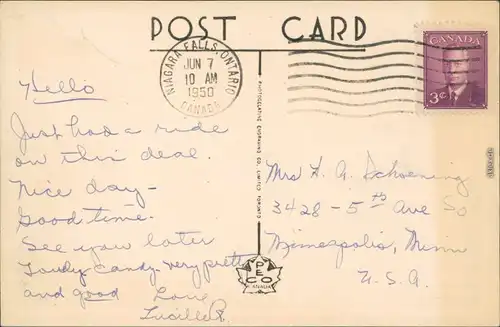 POST CARD
NIAGARA FALLS, ONTARIO
JUN 7
10 AM
1950
CANADA
CANADA
3¢
Hello
Just had a ride
on this deal.
Nice day-
Good time.
See you later
candy-very pretty
and good Love
Lucille R.
Mrs H. A. Schoening
3428-5th Ave So
Minneapolis, Minn
U.S.A.
PHOTOGELATINE ENGRAVING CO. LIMITED OTTAWA
PECO
CANADA